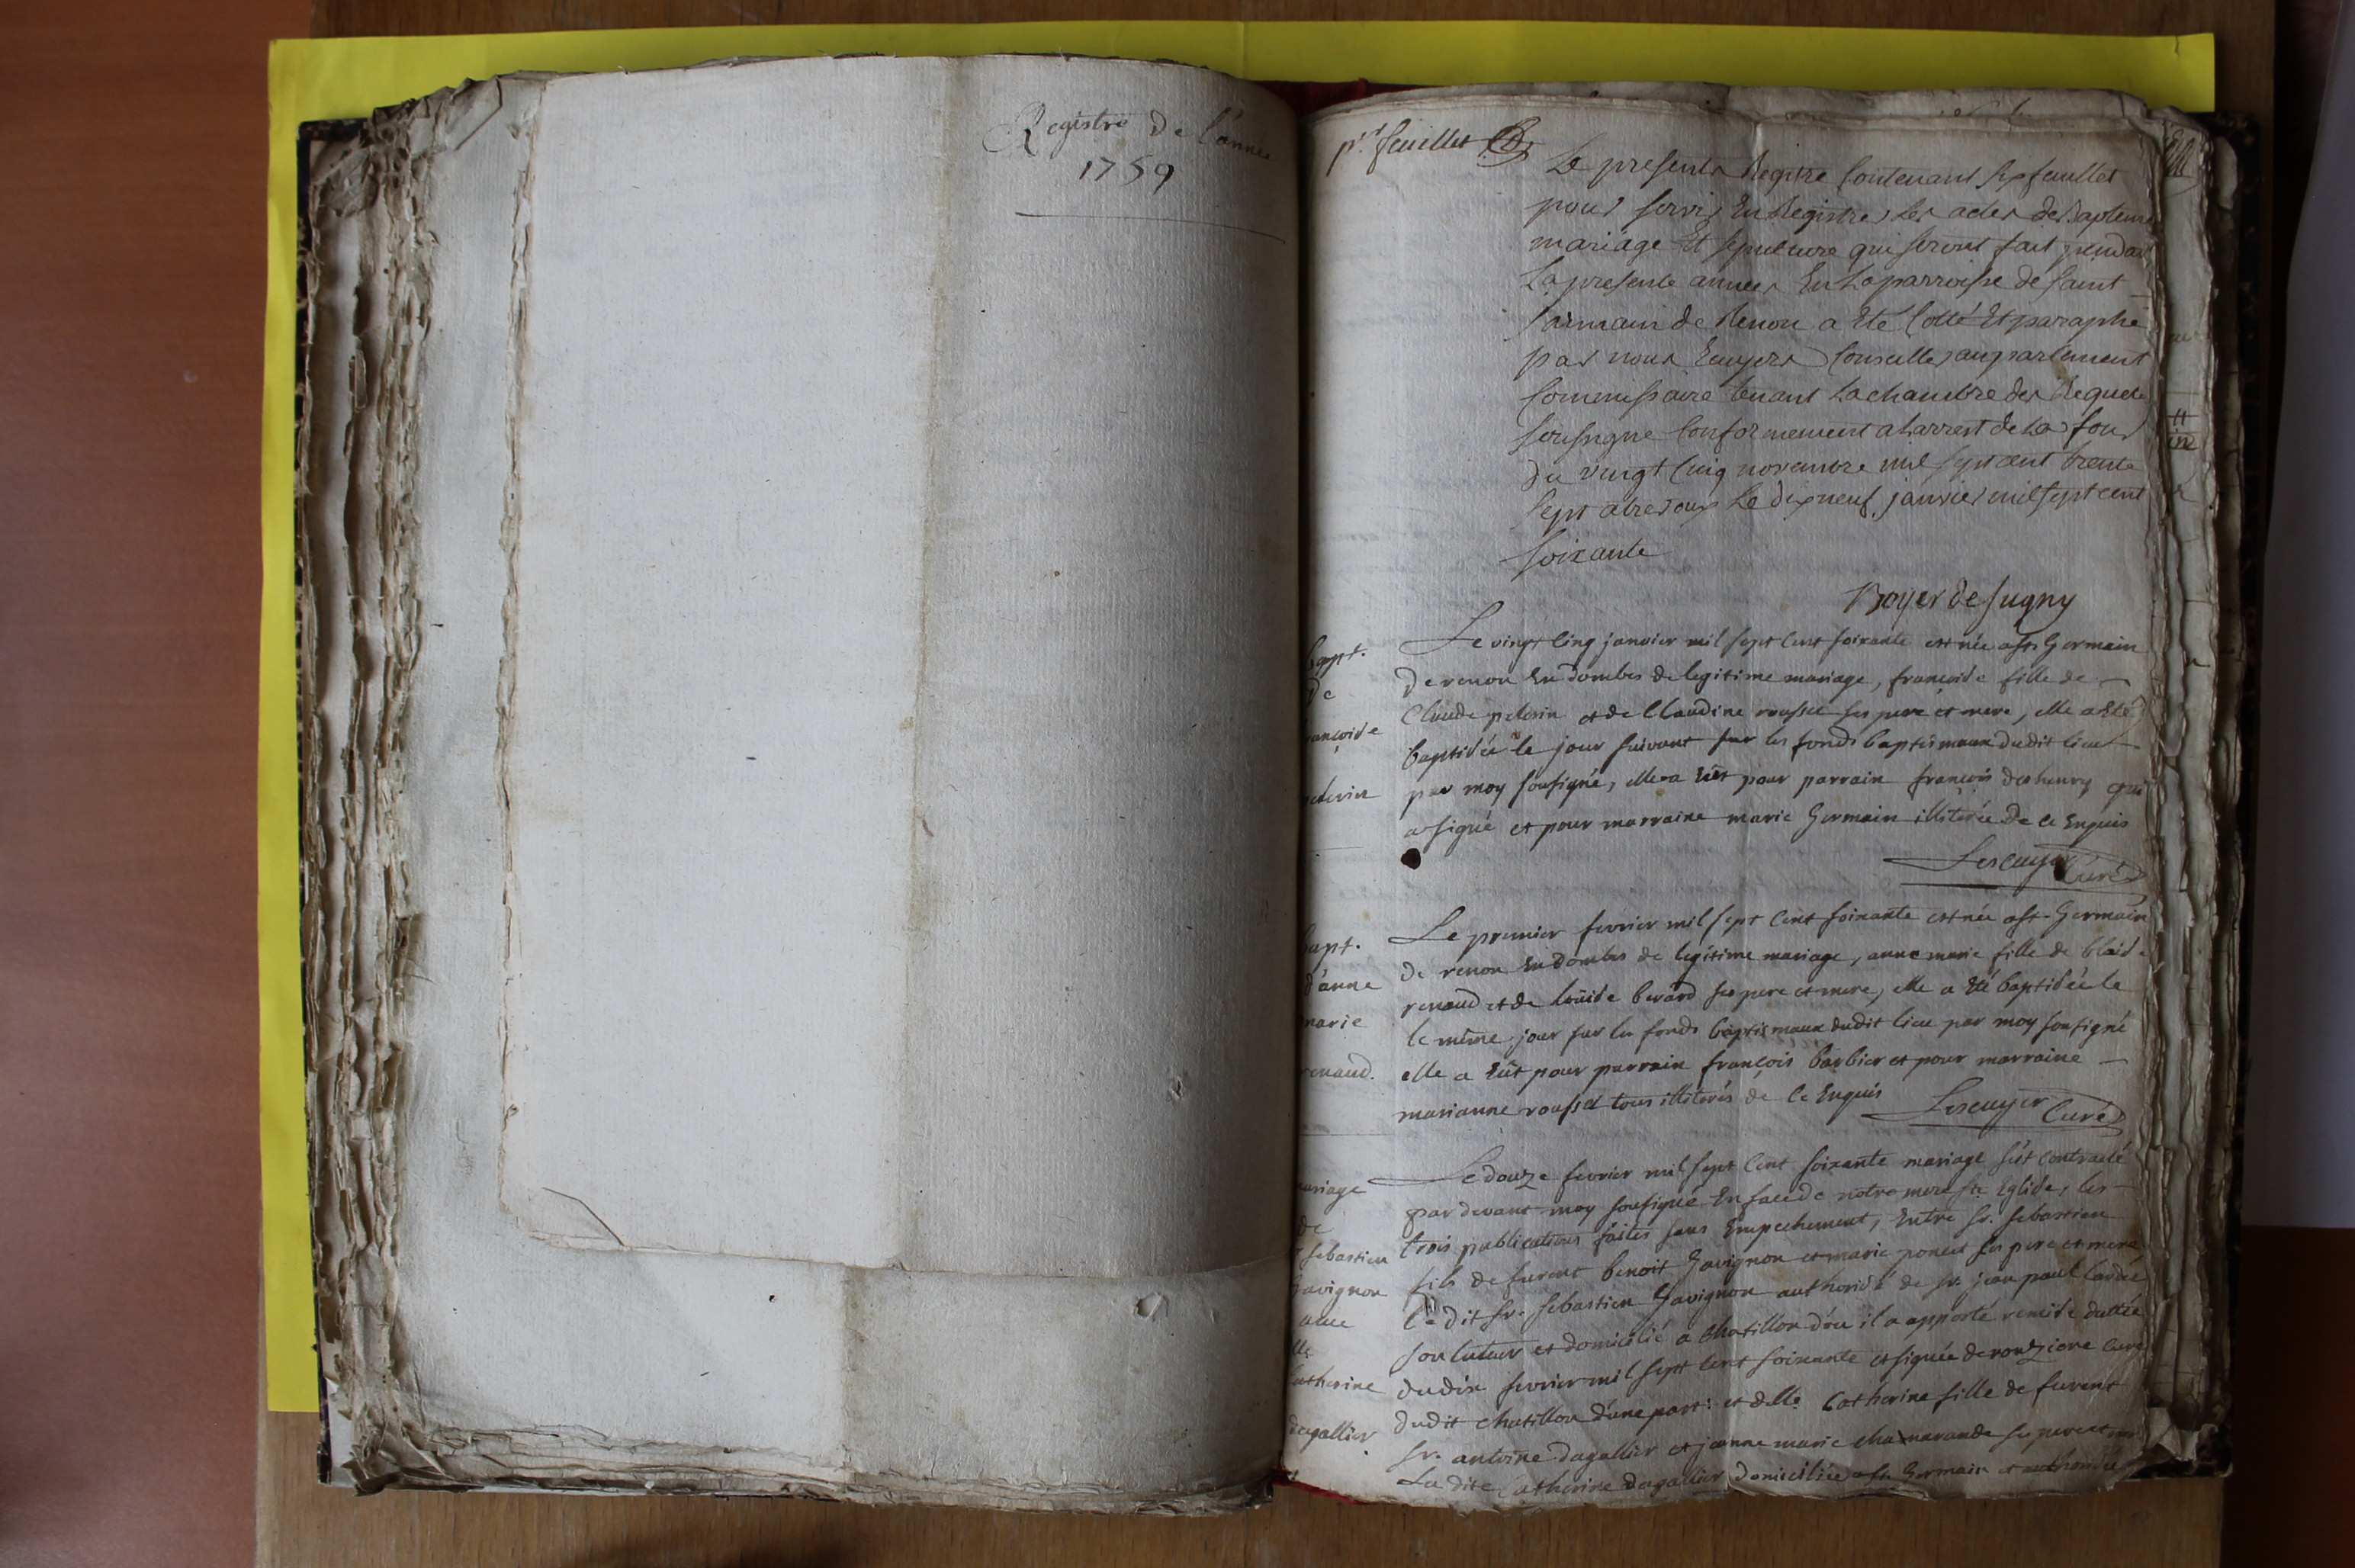 Registre de l'année
1759
pr. feuillet
Le present Registre Contenant six feuillet
pour servir En Registrer les actes de Bapteme
mariage Et sepulture qui seront fait pendant
La presente année En La parroisse de saint
jermain de Renon a Eté Cotté Et paraphé
par nous Ecuyer Conseiller au parlement
Commissaire tenant La chambre des Requete
soussigne Conformement a Larrest de La Cour
du vingt Cinq novembre mil sept cent trente
sept a trevoux Le dixneuf janvier mil sept cent
soixante
Boyer de sugny
bapt.
de
françoise
pelerin
Le vingt Cinq janvier mil sept Cent soixante est née a st Germain
de renon En dombes de legitime mariage, françoise fille de
Claude pelerin et de Claudine rousset ses pere et mere, elle a Eté
baptisée le jour suivant sur les fonds baptismaux dudit lieu
par moy sousigné, elle a Eüt pour parrain françois deshenry qui
a signé et pour marraine marie Germain illiterée de ce Enquis
Lescuyer Curé
bapt.
d'anne
marie
renaud.
Le premier fevrier mil sept Cent soixante est née a st. Germain
de renon En dombes de legitime mariage, anne marie fille de blaise
renaud et de loüise berard ses pere et mere, elle a Eté baptisée le
le même jour sur les fonds baptismaux dudit lieu par moy sousigné
elle a Eüt pour parrain françois barbier et pour marraine
marianne rousset tous illiterés de Ce Enquis
Lescuyer Curé
mariage
de
sr sebastien
Gavignon
avec
dlle
Catherine
dagallier
Le douze fevrier mil sept Cent soixante mariage füt Contracté
par devant moy sousigné En face de notre mere ste Eglise, les
trois publications faites sans Empechement, Entre sr. sebastien
fils de furent benoit Gavignon et marie poncet ses pere et mere
le dit sr. sebastien Gavignon authorisé de sr. jean paul
son tuteur et domicilié a Chatillon d'ou il a apporté remise dattée
du dix fevrier mil sept Cent soixante et signée de rouziere Curé
dudit chatillon d'une part: et dlle. Catherine fille de furent
sr. antoine dagallier et jeanne marie chamarande ses pere et mere
La dite Catherine dagallier domiciliée a st Germain et authorisée